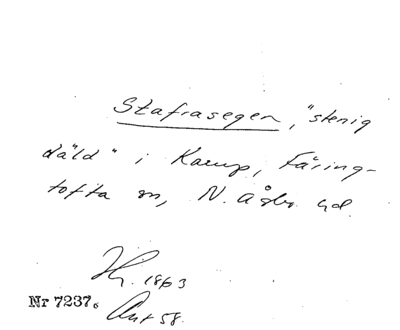 Stafrasegen, "stenig
däld" i Karup, Färing-
tofta sn, N. Åsbo hd
1863
Nr 7237.
Ant 58.